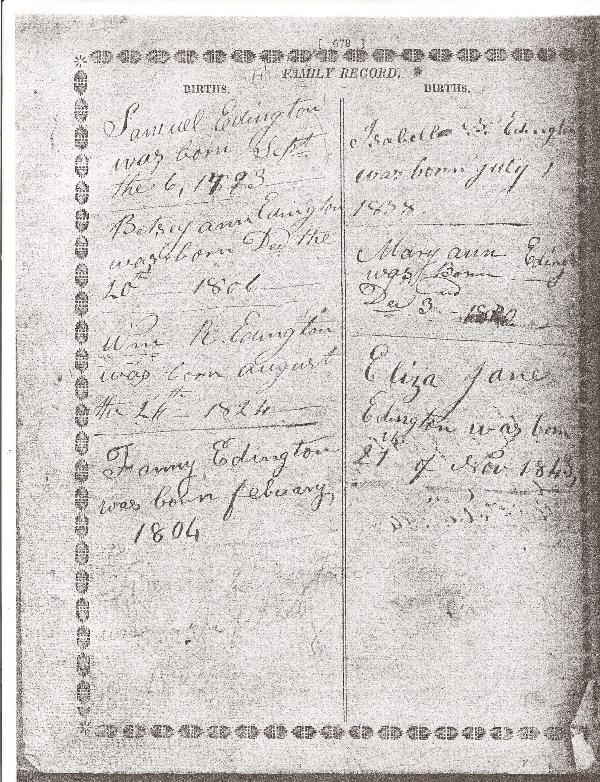 [ 679 ]
FAMILY RECORD.
BIRTHS.
Samuel Edington
was born Sept.
the 6, 1793
Betsey ann Edington
was born Dec the
20th 1806
Wm R. Edington
was born august
the 24th 1824
Fanny Edington
was born febuary
1804
BIRTHS.
Isabella Edington
was born July 1
1838
Mary ann Eding
was Born
Dec 3rd
Eliza Jane
Edington was born
27th of Nov 1843